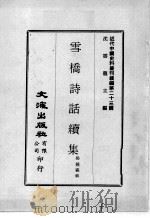 近代中國史料叢刊續編第二十二輯
沈雲龍主編
雪橋詩話續集
楊鍾羲輯
文海出版社有限公司印行